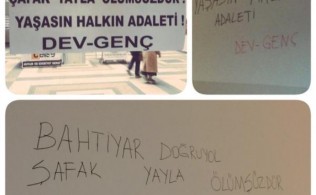 ŞAFAK YAYLA ÖLÜMSÜZDÜR!
YAŞASIN HALKIN ADALETİ!
DEV-GENÇ
YAŞASIN
ADALETİ
DEV-GENÇ
BAHTIYAR DOĞRUYOL
ŞAFAK YAYLA ÖLÜMSÜZDÜR